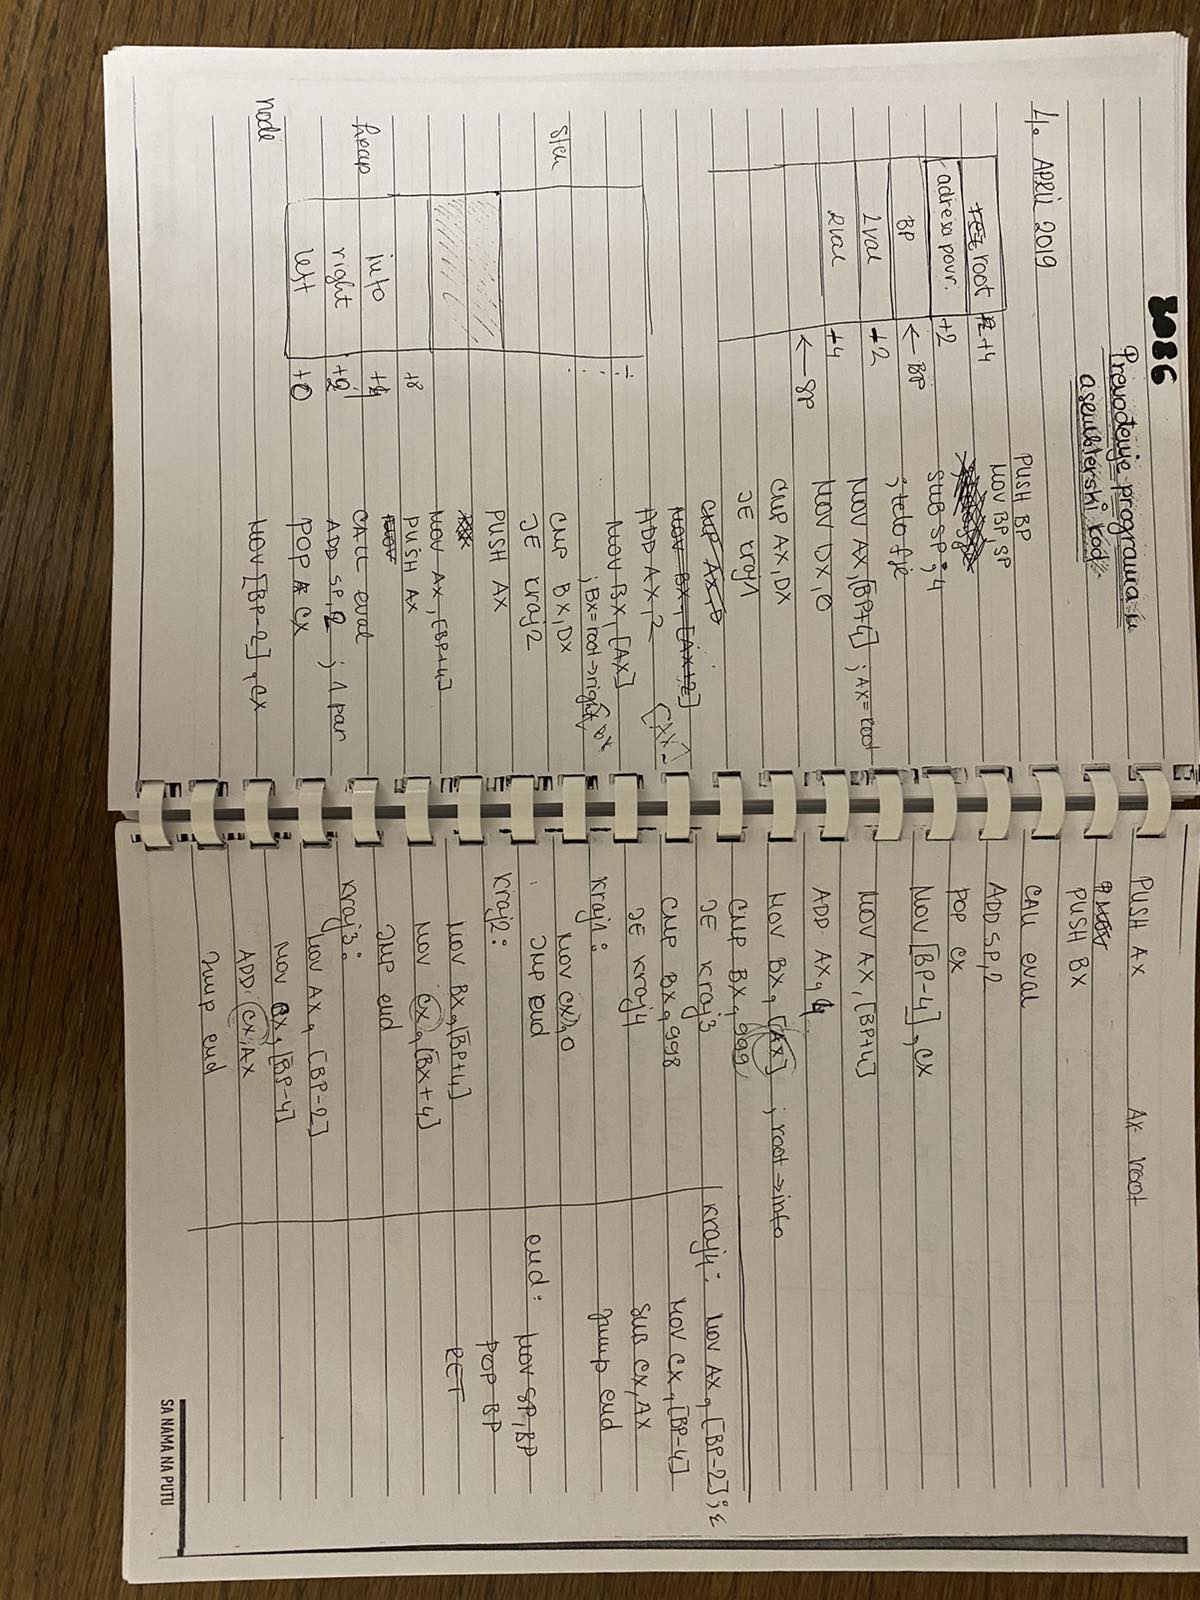 8086
Prevođenje programa u
asemblerski kod:
4. APRIL 2019
root +4
adresa povr. +2
BP ← BP
lval +2
rval +4
← SP
stek
heap
node
info +4
right +2
left +0
+8
PUSH BP
MOV BP SP
SUB SP, 4
; telo fje
MOV AX, [BP+4] ; AX = root
MOV DX, 0
CMP AX, DX
JE kraj1
CMP AX, 0
MOV BX, [AX+2]
ADD AX, 2
MOV BX, [AX]
; BX = root->right
CMP BX, DX
JE kraj2
PUSH AX
MOV AX, [BP+4]
PUSH AX
CALL eval
ADD SP, 2 ; 1 par
POP CX
MOV [BP-2], CX
PUSH AX AX- root
PUSH BX
CALL eval
ADD SP, 2
POP CX
MOV [BP-4], CX
MOV AX, [BP+4]
ADD AX, 4
MOV BX, [AX] ; root->info
CMP BX, 999
JE kraj3
CMP BX, 998
JE kraj4
kraj1:
MOV CX, 0
JMP end
kraj2:
MOV BX, [BP+4]
MOV CX, [BX+4]
JMP end
kraj3:
MOV AX, [BP-2]
MOV CX, [BP-4]
ADD CX, AX
Jump end
kraj4: MOV AX, [BP-2] ;
MOV CX, [BP-4]
SUB CX, AX
Jump end
end:
MOV SP, BP
POP BP
RET
SA NAMA NA PUTU